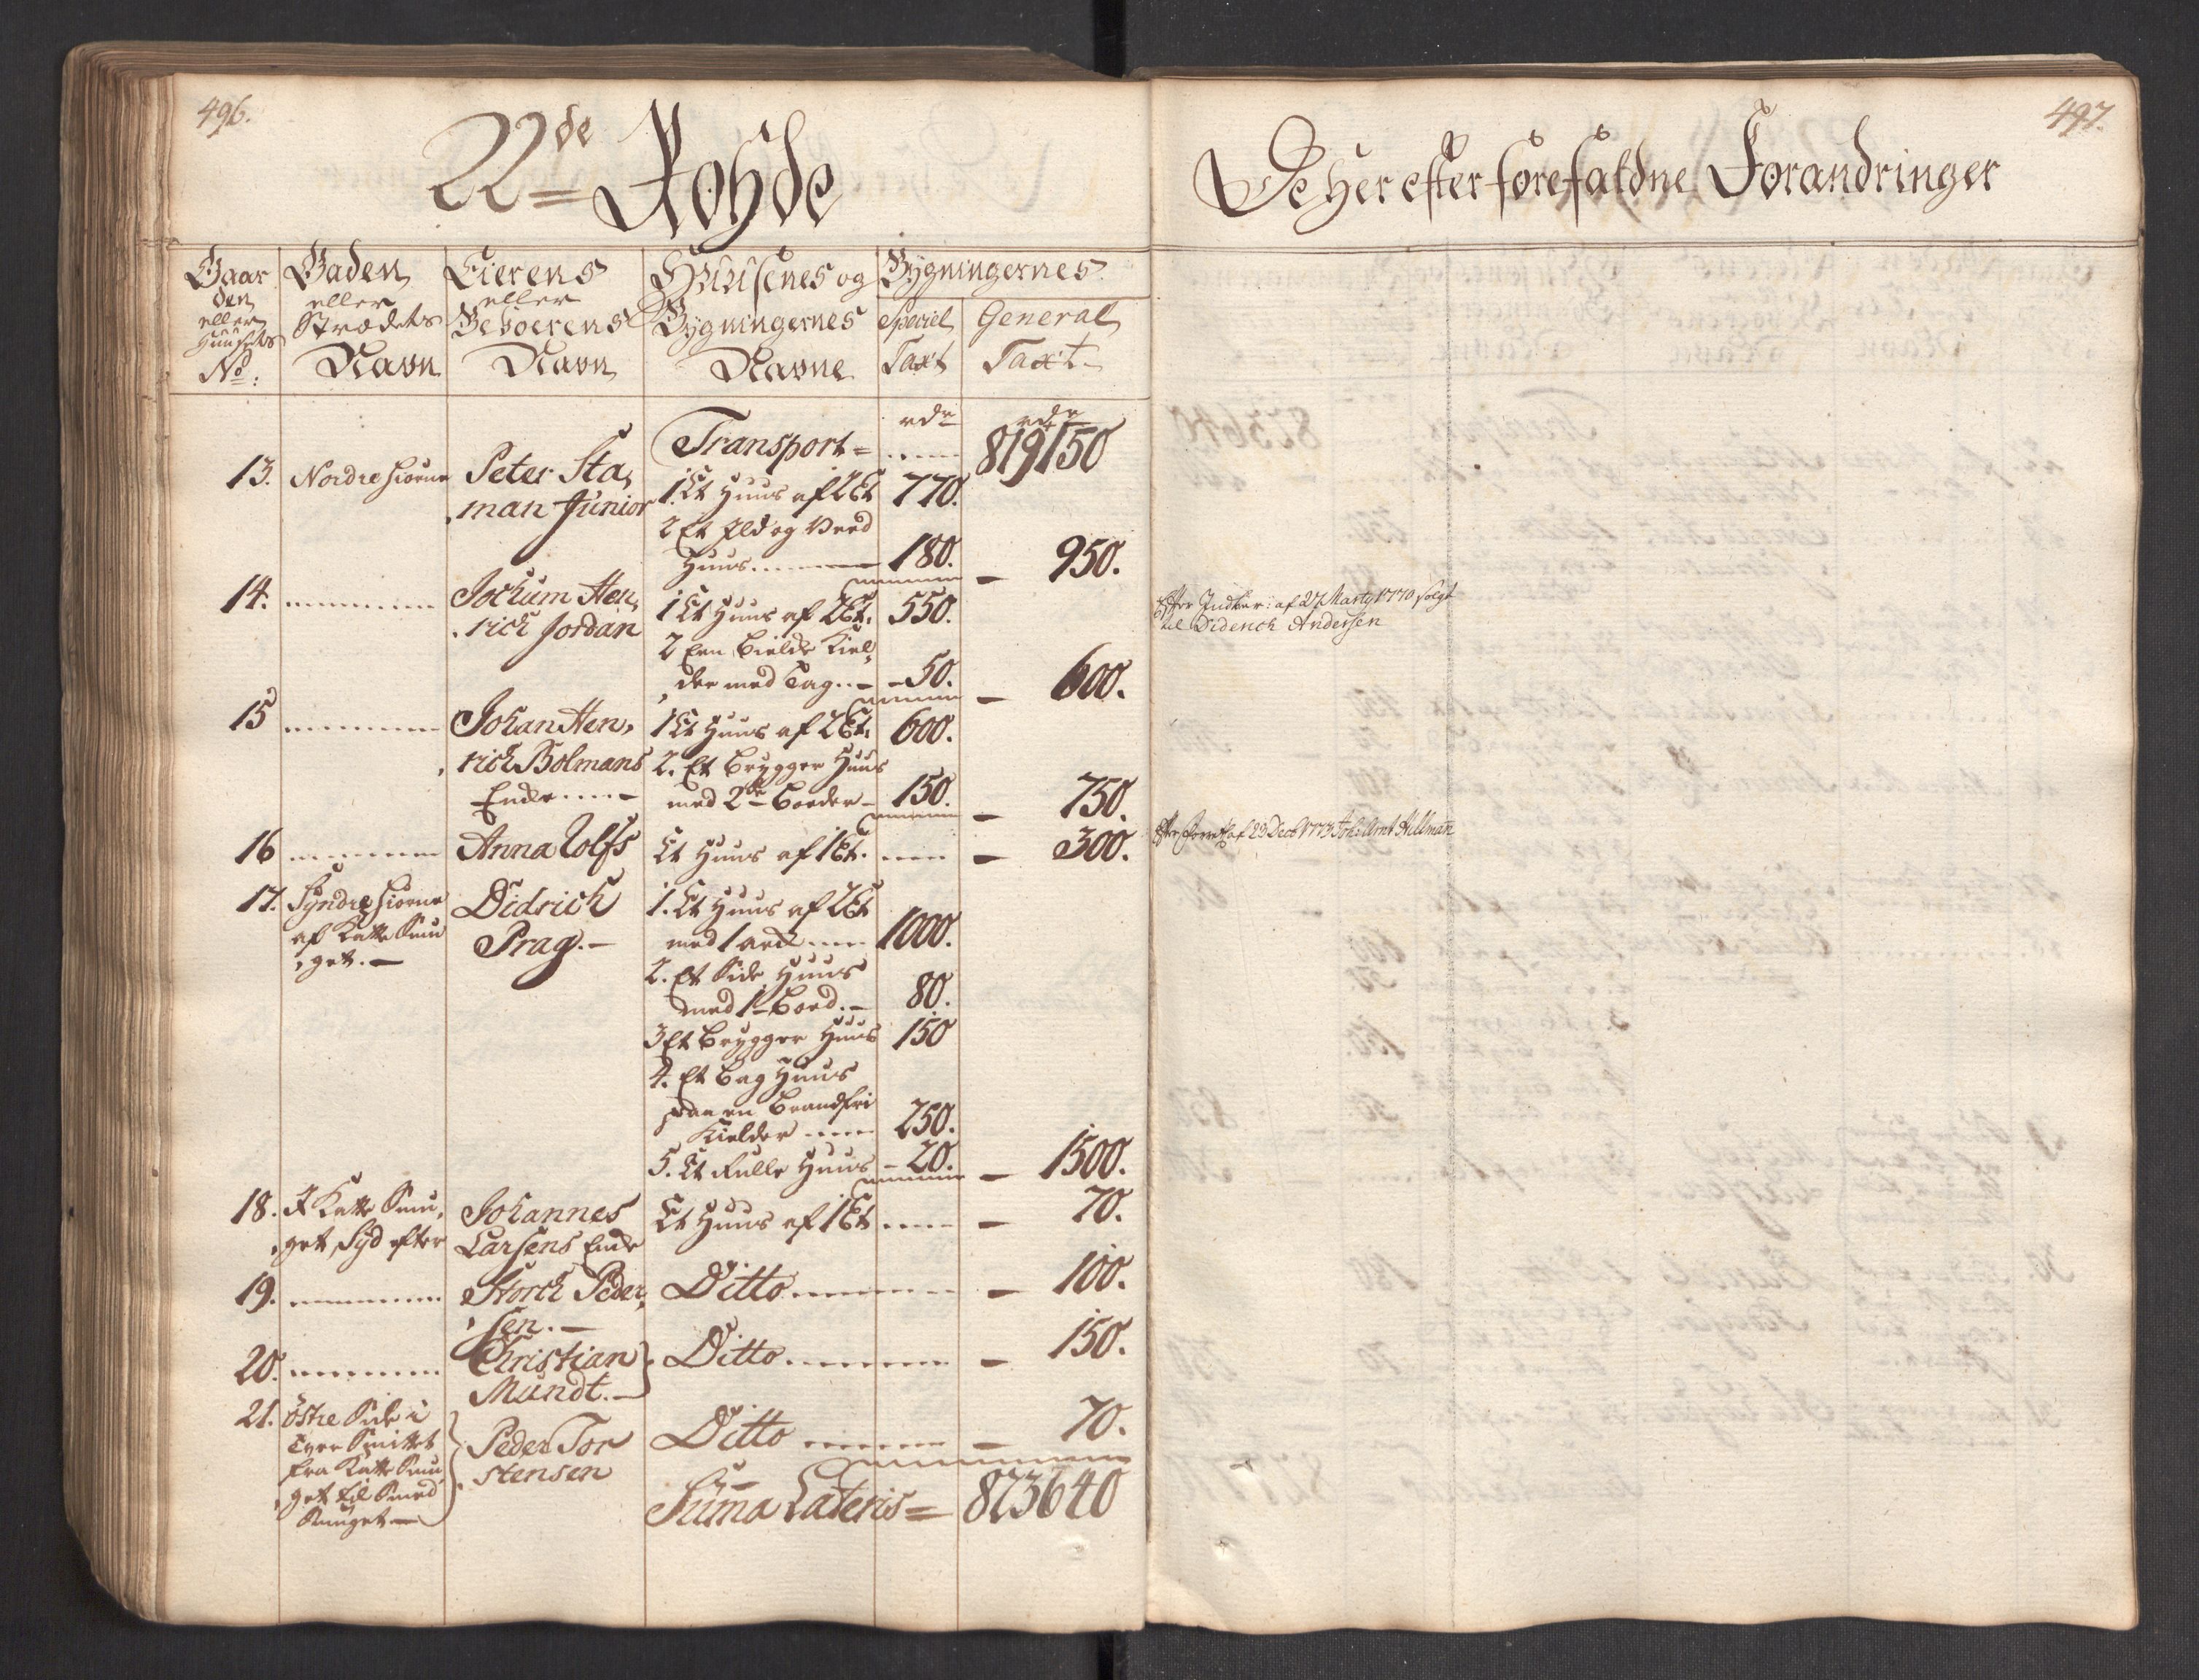 496.
22de Rohde
Gaar
den
eller
Huusets
No:
Gaden
eller
Strædets
Navn
Eierens
eller
Beboerens
Navn
Huusenes og
Bygningernes
Navne
Bygningernes
Speciel
Taxt
General
Taxt
rdr
rdr
Transport = 819150
13. Nordre hiørne Peter Sta,
,man Junior
1. Et Huus af 2 Et 770.
2 Et Ild og Veed
Huus 180. 950.
14. Jochum Hen,
,rich Jordan
1 Et Huus af 2 Et. 550.
2 Een Bielde Kiel,
,der med Tag 50. 600.
15 Johan Hen,
,rich Bolmans
Enke
1 Et Huus af 2 Et. 600.
2. Et Brygger Huus
med 2de Boeder 150. 750.
16 Anna Rolfs Et Huus af 1 Et. 300.
17. Syndre hiørne
af Katte Smu
,get.
Didrich
Prag.
1. Et Huus af 2 Et
med 1 arck 1000.
2. Et Side Huus
med 1 Boed. 80.
3 Et Brygger Huus 150
4. Et Bag Huus
paa en Brandfri
Kielder 250.
5. Et Rulle Huus 20. 1500.
18. I Katte Smu,
,get, Syd efter
Johannes
Larsens Enke
Et Huus af 1 Et 70.
19. Storch Peder,
,sen.
Ditto 100.
20. Christian
Mundt.
Ditto 150.
21. Østre Side i
Tver Smittet
fra Katte Smu
,get til Smed
Smuget
Peder Tor
,stensen
Ditto 70.
Suma Lateris = 823640
497.
De Her efter forefaldne Forandringer
Efter af 27 Marty 1770 solgt
til Diderich Andersen
Efter af 29 Dec 1773 Joh: Arnt Hillman